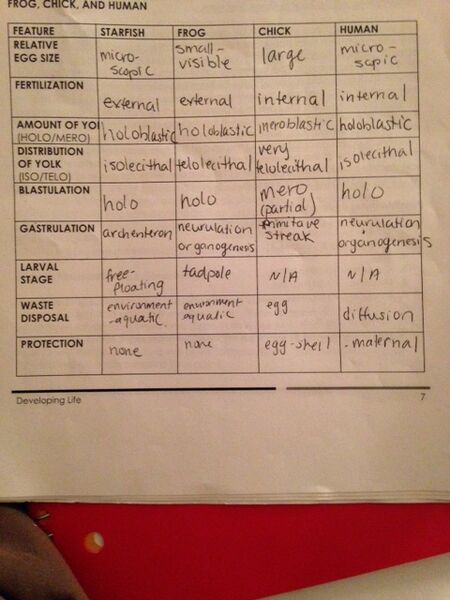 FROG, CHICK, AND HUMAN
FEATURE STARFISH FROG CHICK HUMAN
RELATIVE EGG SIZE micro-scopic small-visible large micro-scopic
FERTILIZATION external external internal internal
AMOUNT OF YOL (HOLO/MERO) holoblastic holoblastic meroblastic holoblastic
DISTRIBUTION OF YOLK (ISO/TELO) isolecithal telolecithal very telolecithal isolecithal
BLASTULATION holo holo mero (partial) holo
GASTRULATION archenteron neurulation organogenesis primitave streak neurulation organogenesis
LARVAL STAGE free-floating tadpole N/A N/A
WASTE DISPOSAL environment -aquatic environment aquatic egg diffusion
PROTECTION none none egg-shell -maternal
Developing Life 7